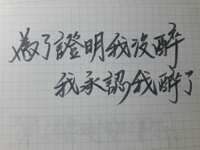 為了證明我沒醉
我承認我醉了